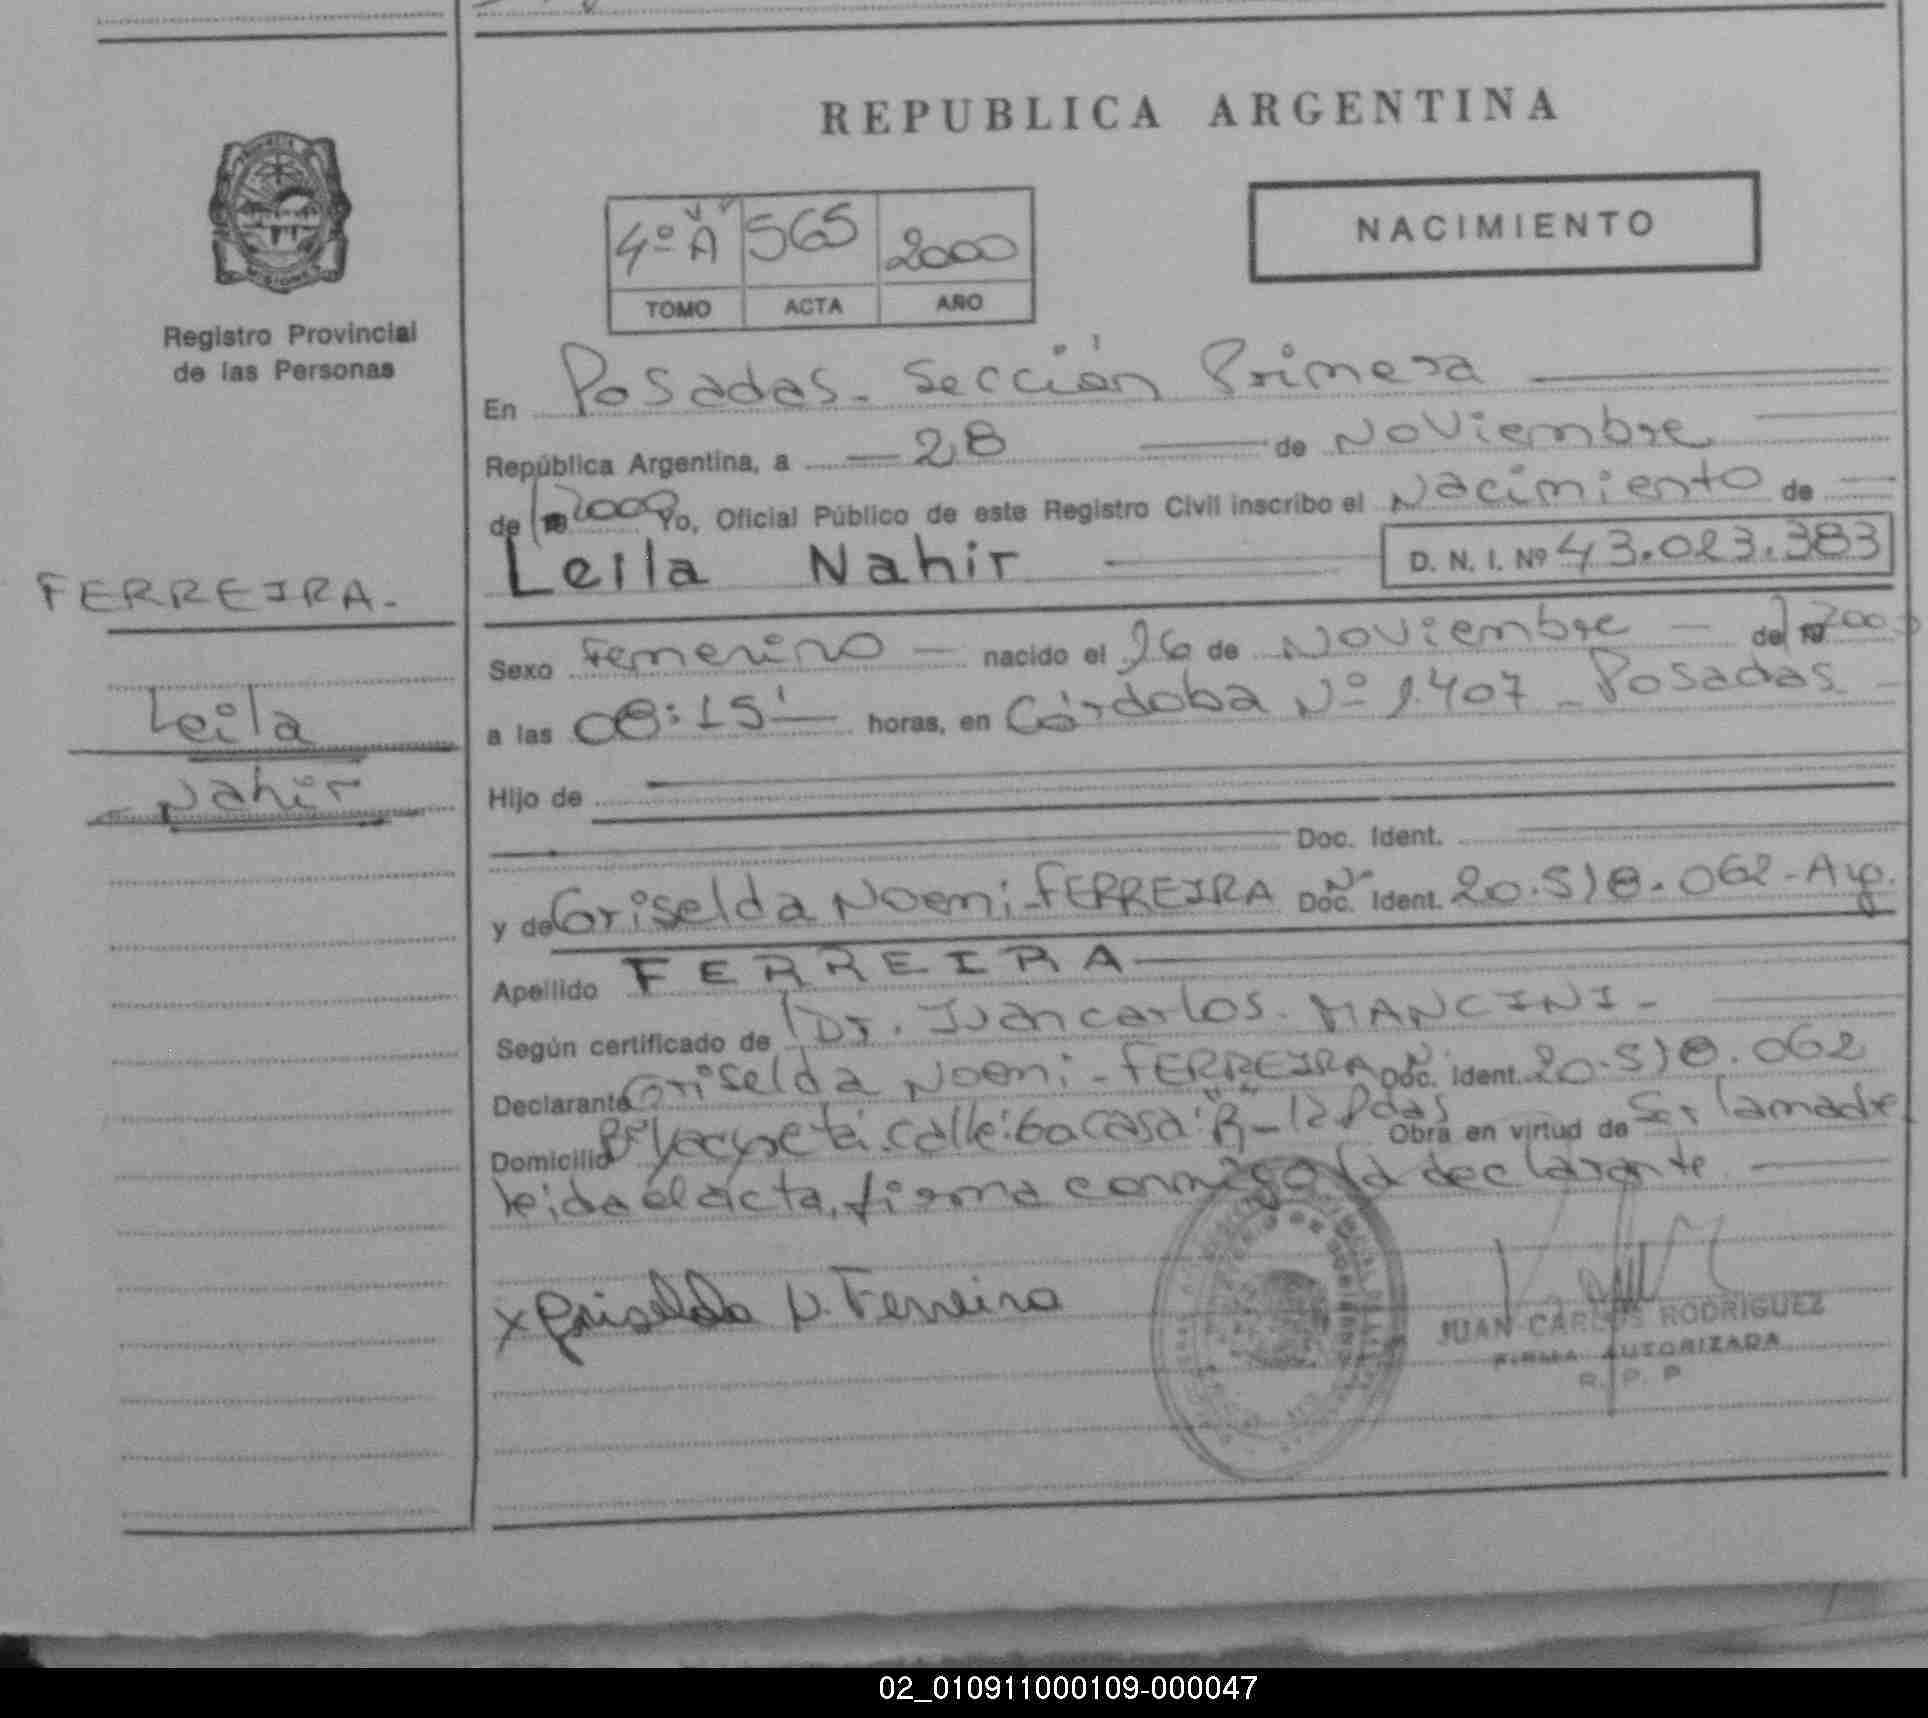 REPUBLICA ARGENTINA
NACIMIENTO
4º A 565 2000
TOMO ACTA AÑO
Registro Provincial
de las Personas
En Posadas - Sección Primera
República Argentina, a 28 de Noviembre
de 2000 Yo, Oficial Público de este Registro Civil inscribo el Nacimiento de
Leila Nahir D. N. I. Nº 43.023.383
FERREIRA.
Leila
Nahir
Sexo Femenino nacido el 26 de Noviembre de 2000
a las 08:15' horas, en Córdoba Nº 1407 - Posadas
Hijo de
Doc. Ident.
y de Griselda Noemi - FERREIRA Doc. Ident. Nº 20.518.062 - Arg.
Apellido FERREIRA
Según certificado de Dr. Juan Carlos MANCINI -
Declarante Griselda Noemi - FERREIRA Doc. Ident. Nº 20.518.062
Domicilio Bº Yacyretá calle: 60 casa: Obra en virtud de Ser la madre
leida el acta, firma conmigo la declarante
x Griselda N. Ferreira
JUAN CARLOS RODRIGUEZ
FIRMA AUTORIZADA
R. P. P
02_010911000109-000047